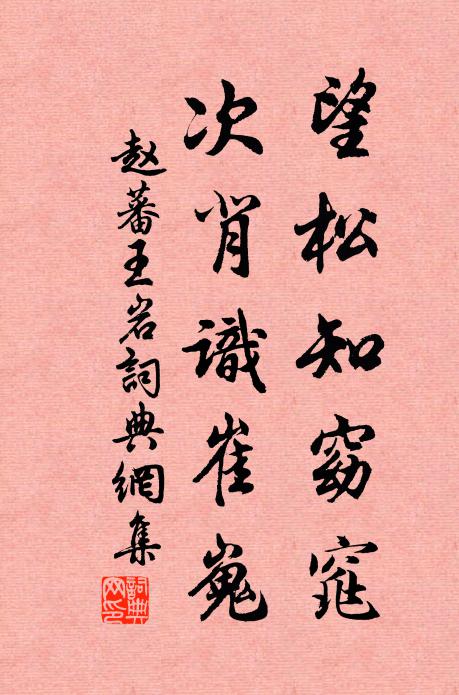 望松知窈窕
次肖識崔嵬
赵蕃王岩詞典網集
詞典
网印